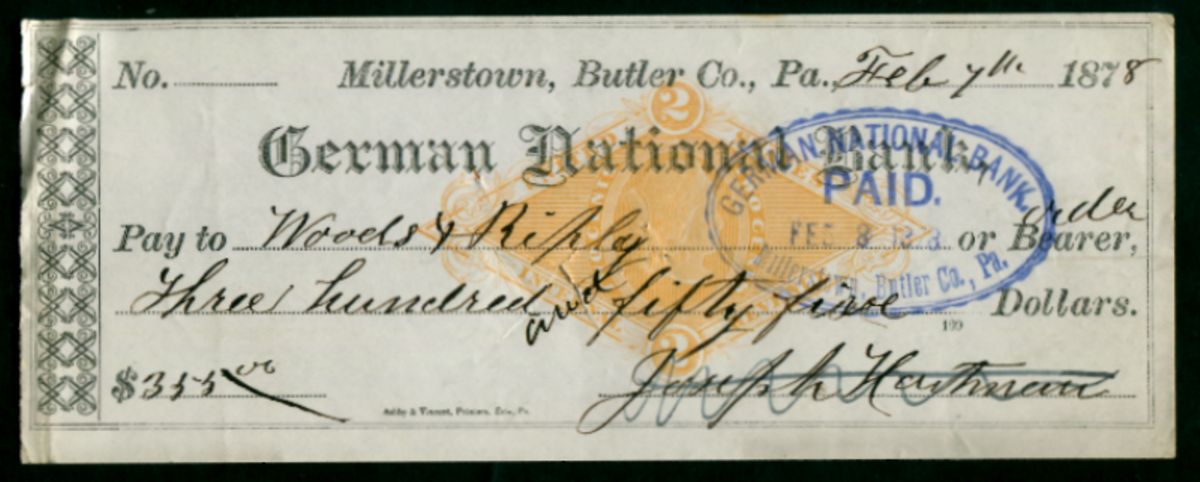 No. Millerstown, Butler Co., Pa. Feb 7th 1878
2
German National Bank,
GERMAN NATIONAL BANK,
PAID.
FEB 8 1878
Millerstown, Butler Co., Pa.
order
Pay to Woods & Ripley or Bearer,
Three hundred and fifty five 100 Dollars.
2
$355 00 Joseph Hartman
Ashby & Vincent, Printers, Erie, Pa.